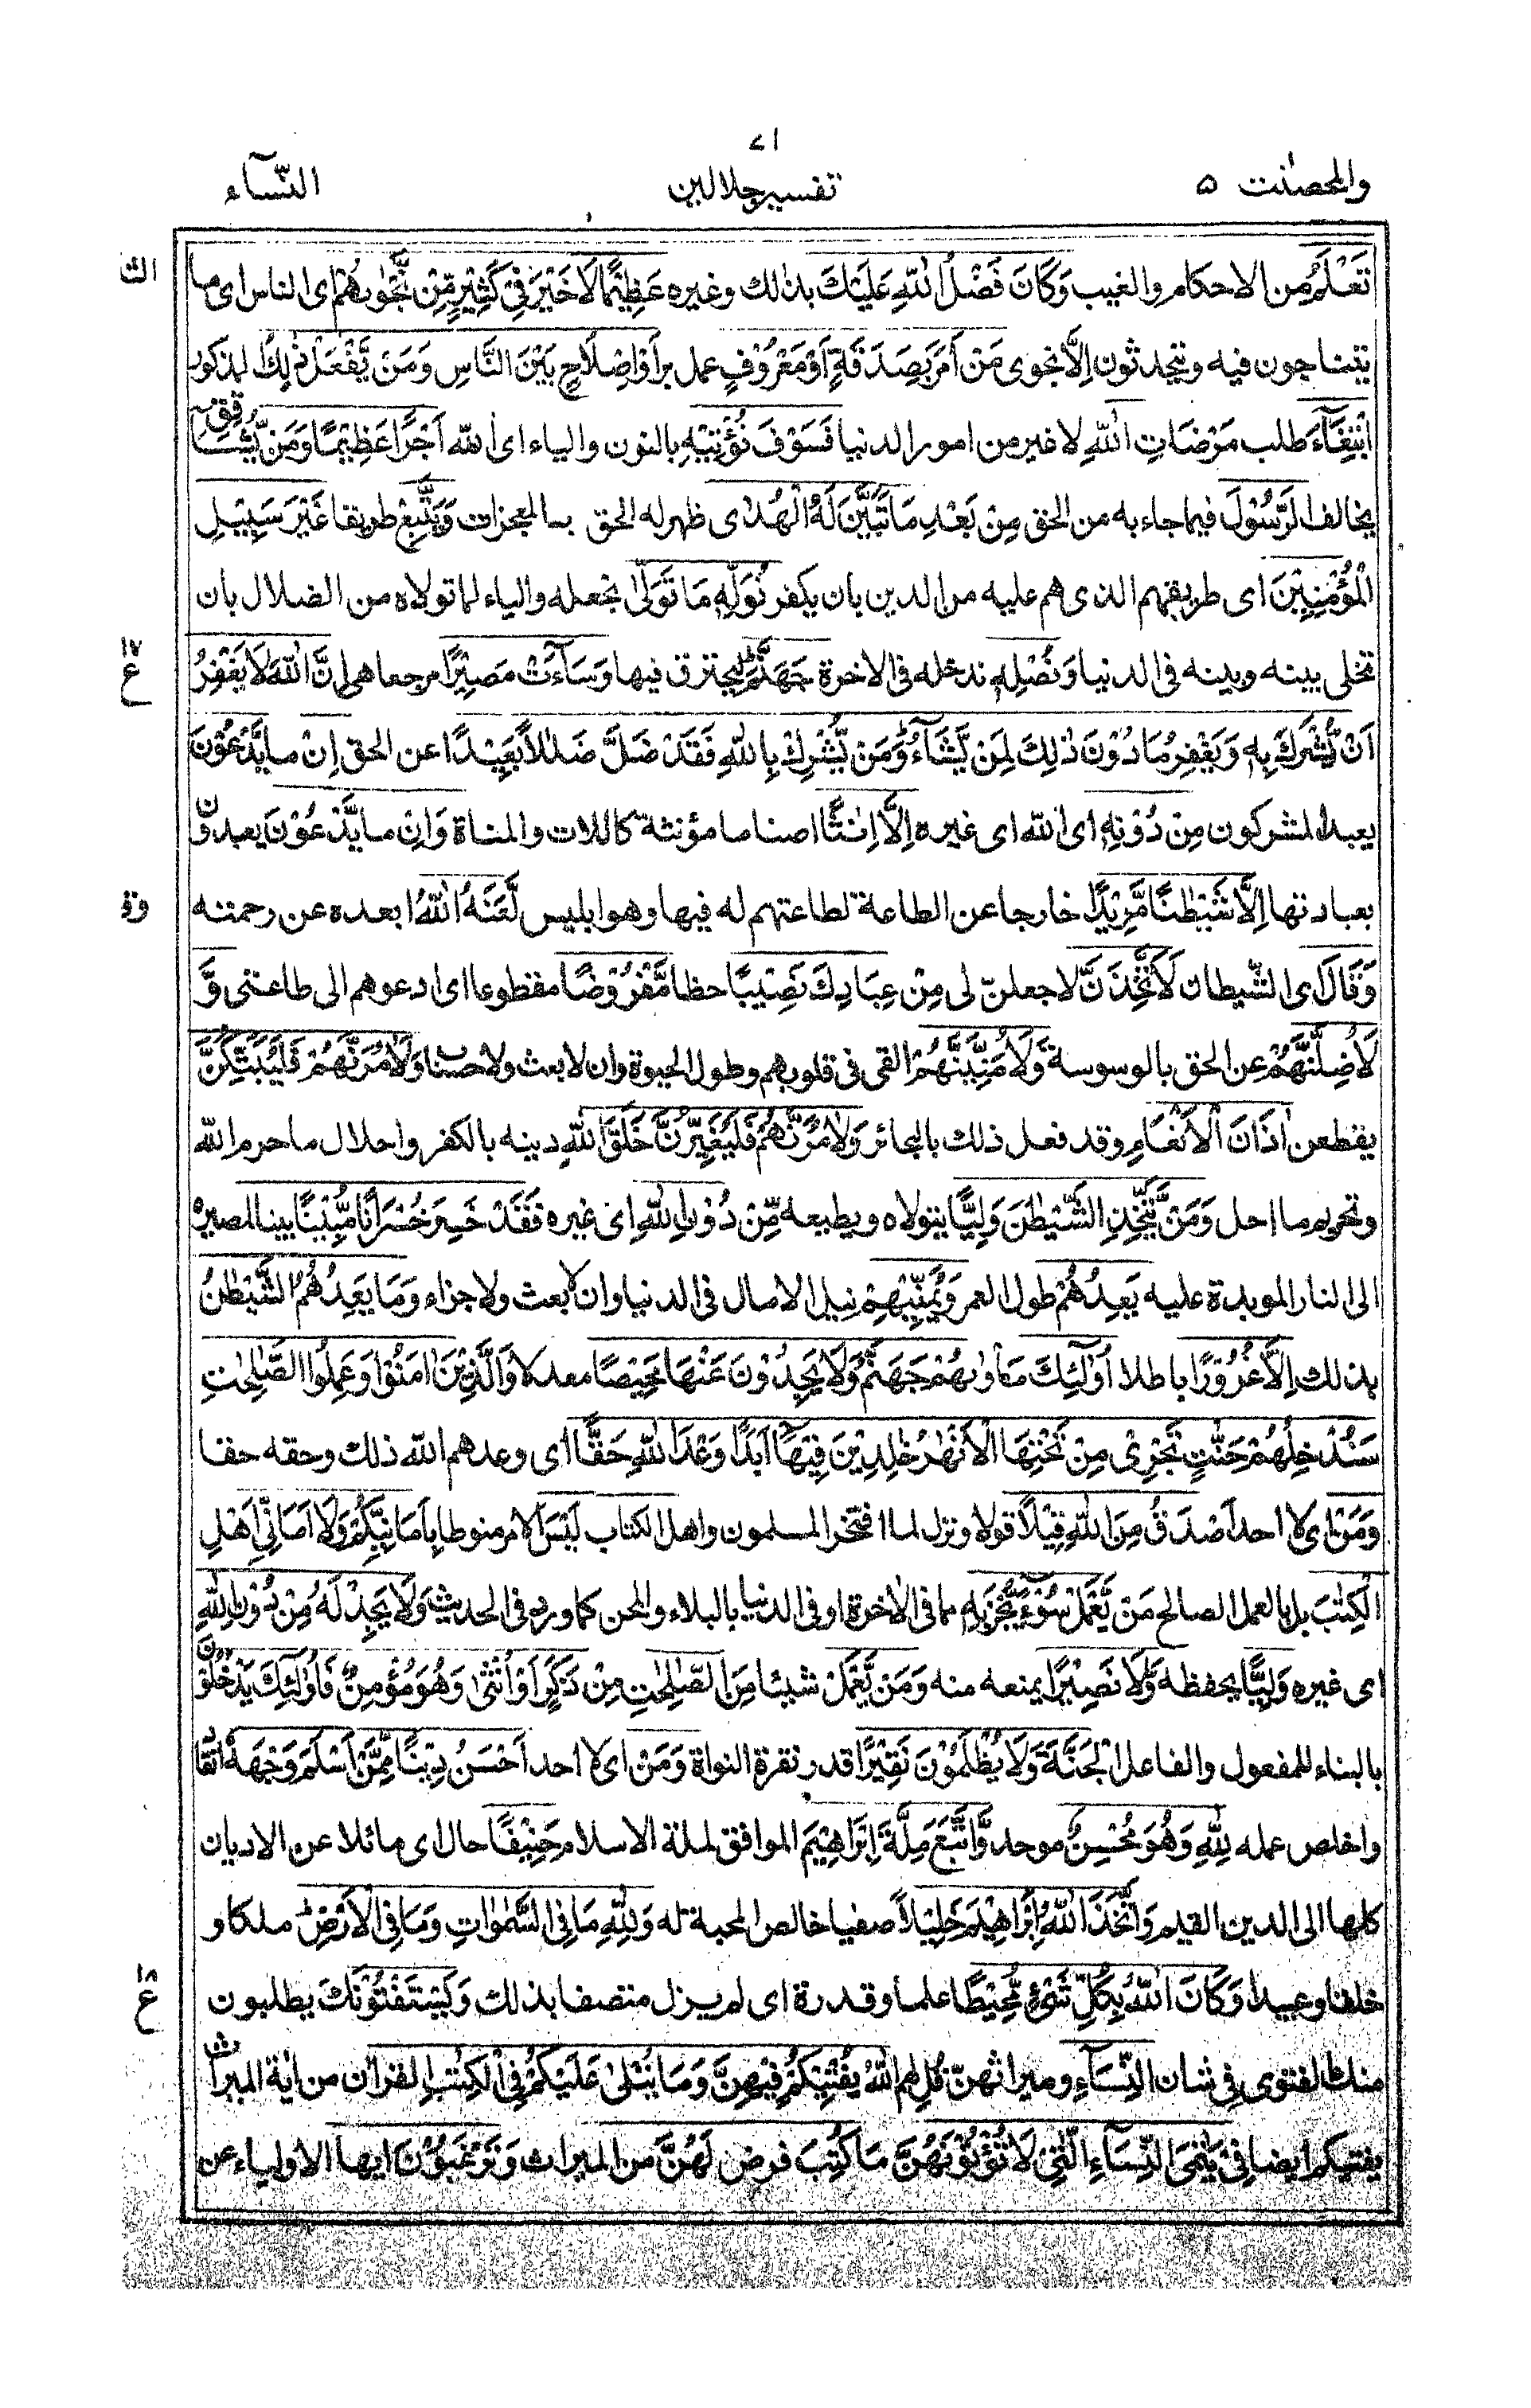 ٨١
والمحصنت ٥ تفسیر جلالین النّسآء
تَعْلَمُ من الاحكام والغيب وَكَانَ فَضْلُ اللهِ عَلَيْكَ بذلك وغيره عَظِيْمًا لَا خَيْرَ فِيْ كَثِيْرٍ مِّنْ نَّجْوٰىهُمْ اى الناس اى ما
يتناجون فيه ويتحدثون اِلَّا نجوى مَنْ اَمَرَ بِصَدَقَةٍ اَوْ مَعْرُوْفٍ عمل بر اَوْ اِصْلَاحٍ بَيْنَ النَّاسِ وَمَنْ يَّفْعَلْ ذٰلِكَ المذكور
ابْتِغَآءَ طلب مَرْضَاتِ اللهِ لا غير من امور الدنيا فَسَوْفَ نُؤْتِيْهِ بالنون والياء اى الله اَجْرًا عَظِيْمًا وَمَنْ يُّشَاقِقِ
يخالف الرَّسُوْلَ فيما جاء به من الحق مِنْ بَعْدِ مَا تَبَيَّنَ لَهُ الْهُدٰى ظهر له الحق بالمعجزات وَيَتَّبِعْ طريقا غَيْرَ سَبِيْلِ
الْمُؤْمِنِيْنَ اى طريقهم الذى هم عليه من الدين بان يكفر نُوَلِّهٖ مَا تَوَلّٰى نجعله واليا لما تولاه من الضلال بان
نخلى بينه وبينه فى الدنيا وَنُصْلِهٖ ندخله فى الاخرة جَهَنَّمَ ليحترق فيها وَسَآءَتْ مَصِيْرًا مرجعا هى اِنَّ اللهَ لَا يَغْفِرُ
اَنْ يُّشْرَكَ بِهٖ وَيَغْفِرُ مَا دُوْنَ ذٰلِكَ لِمَنْ يَّشَآءُ وَمَنْ يُّشْرِكْ بِاللهِ فَقَدْ ضَلَّ ضَلٰلًا بَعِيْدًا عن الحق اِنْ ما يَّدْعُوْنَ
يعبد المشركون مِنْ دُوْنِهٖ اى الله اى غيره اِلَّا اِنٰثًا اصناما مؤنثة كاللات والمناة وَاِنْ ما يَّدْعُوْنَ يعبدون
بعبادتها اِلَّا شَيْطٰنًا مَّرِيْدًا خارجا عن الطاعة لطاعتهم له فيها وهو ابليس لَّعَنَهُ اللهُ ابعده عن رحمته
وَقَالَ اى الشيطان لَاَتَّخِذَنَّ لاجعلنّ لى مِنْ عِبَادِكَ نَصِيْبًا حظا مَّفْرُوْضًا مقطوعا اى ادعوهم الى طاعتى وَّ
لَاُضِلَّنَّهُمْ عن الحق بالوسوسة وَلَاُمَنِّيَنَّهُمْ القى فى قلوبهم وطول الحيوة وان لا بعث ولا حساب وَلَاٰمُرَنَّهُمْ فَلَيُبَتِّكُنَّ
يقطعن اٰذَانَ الْاَنْعَامِ وقد فعل ذلك بالبحائر وَلَاٰمُرَنَّهُمْ فَلَيُغَيِّرُنَّ خَلْقَ اللهِ دينه بالكفر واحلال ما حرم الله
وتحريم ما احل وَمَنْ يَّتَّخِذِ الشَّيْطٰنَ وَلِيًّا يتولاه ويطيعه مِّنْ دُوْنِ اللهِ اى غيره فَقَدْ خَسِرَ خُسْرَانًا مُّبِيْنًا بينا لمصيره
الى النار المويدة عليه يَعِدُهُمْ طول العمر وَيُمَنِّيْهِمْ نيل الامال فى الدنيا وان لا بعث ولا جزاء وَمَا يَعِدُهُمُ الشَّيْطٰنُ
بذلك اِلَّا غُرُوْرًا باطلا اُولٰٓئِكَ مَاْوٰىهُمْ جَهَنَّمُ وَلَا يَجِدُوْنَ عَنْهَا مَحِيْصًا معدلا وَالَّذِيْنَ اٰمَنُوْا وَعَمِلُوا الصّٰلِحٰتِ
سَنُدْخِلُهُمْ جَنّٰتٍ تَجْرِىْ مِنْ تَحْتِهَا الْاَنْهٰرُ خٰلِدِيْنَ فِيْهَا اَبَدًا وَعْدَ اللهِ حَقًّا اى وعدهم الله ذلك وحقه حقا
وَمَنْ اى لا احد اَصْدَقُ مِنَ اللهِ قِيْلًا قولا ونزل لما افتخر المسلمون واهل الكتاب لَيْسَ الامر منوطا بِاَمَانِيِّكُمْ وَلَا اَمَانِيِّ اَهْلِ
الْكِتٰبِ بل بالعمل الصالح مَنْ يَّعْمَلْ سُوْٓءًا يُّجْزَ بِهٖ اما فى الاخرة او فى الدنيا بالبلاء والمحن كما ورد فى الحديث وَلَا يَجِدْ لَهٗ مِنْ دُوْنِ اللهِ
اى غيره وَلِيًّا يحفظه وَّلَا نَصِيْرًا يمنعه منه وَمَنْ يَّعْمَلْ شيئا مِنَ الصّٰلِحٰتِ مِنْ ذَكَرٍ اَوْ اُنْثٰى وَهُوَ مُؤْمِنٌ فَاُولٰٓئِكَ يَدْخُلُوْنَ
بالبناء للمفعول والفاعل الْجَنَّةَ وَلَا يُظْلَمُوْنَ نَقِيْرًا قدر نقرة النواة وَمَنْ اى لا احد اَحْسَنُ دِيْنًا مِّمَّنْ اَسْلَمَ وَجْهَهٗ انقاد
واخلص عمله لِلّٰهِ وَهُوَ مُحْسِنٌ موحد وَّاتَّبَعَ مِلَّةَ اِبْرَاهِيْمَ الموافق لملة الاسلام حَنِيْفًا حال اى مائلا عن الاديان
كلها الى الدين القيم وَاتَّخَذَ اللهُ اِبْرَاهِيْمَ خَلِيْلًا صفيا خالص المحبة له وَلِلّٰهِ مَا فِى السَّمٰوٰتِ وَمَا فِى الْاَرْضِ ملكا و
خلقا وعبيدا وَكَانَ اللهُ بِكُلِّ شَىْءٍ مُّحِيْطًا علما وقدرة اى لم يزل متصفا بذلك وَيَسْتَفْتُوْنَكَ يطلبون
منك الفتوى فِى شان النِّسَآءِ وميراثهنّ قُلِ لهم اللهُ يُفْتِيْكُمْ فِيْهِنَّ وَمَا يُتْلٰى عَلَيْكُمْ فِى الْكِتٰبِ القرآن من اٰية الميراث
يفتيكم ايضا فِىْ يَتٰمَى النِّسَآءِ الّٰتِىْ لَا تُؤْتُوْنَهُنَّ مَا كُتِبَ فرض لَهُنَّ من الميراث وَتَرْغَبُوْنَ ايها الاولياء عن
١٧
ع
١٨
ع